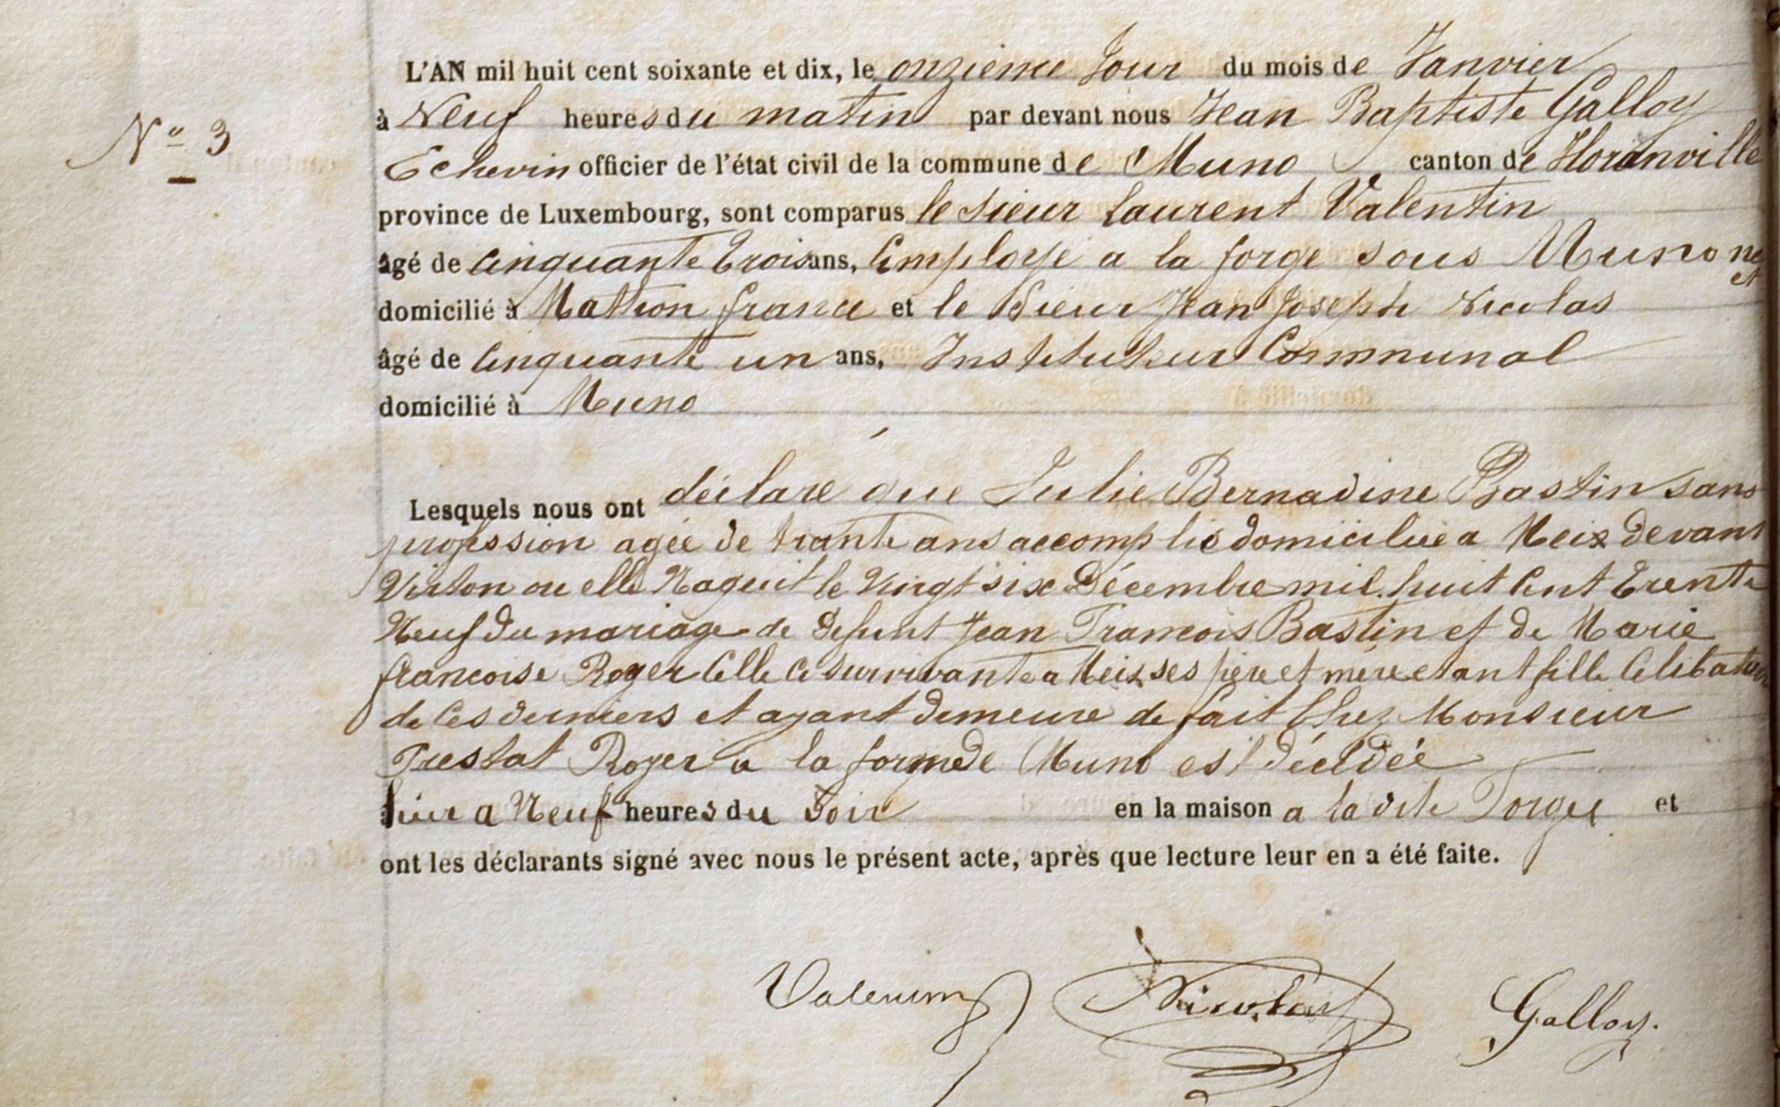 L'AN mil huit cent soixante et dix, le onzieme Jour du mois de Janvier
à Neuf heures du matin par devant nous Jean Baptiste Galloy
N° 3
Echevin officier de l'état civil de la commune de Muno canton de Floranville
province de Luxembourg, sont comparus le sieur Laurent Valentin
âgé de cinquante trois ans, Employé a la forge sous Muno
domicilié à Matton france et le Sieur Jean Joseph Nicolas
âgé de Cinquante un ans, Instituteur Communal
domicilié à Muno
Lesquels nous ont déclaré que Julie Bernadine Bastin sans
profession agée de trante ans accomplis domiciliée a Meix devant
Virton ou elle Naquit le Vingt six Décembre mil huit Cent trente
Neuf du mariage de Defunt Jean Francois Bastin et de Marie
francoise Roger Celle Ci survivante a Meix ses père et mere etant fille Celibataire
de Ces derniers et ayant demeure de fait Chez Monsieur
Roger a la forge de Muno est décédée
hier a Neuf heures du Soir en la maison a la dite Forge et
ont les déclarants signé avec nous le présent acte, après que lecture leur en a été faite.
Valentin Nicolas Galloy.